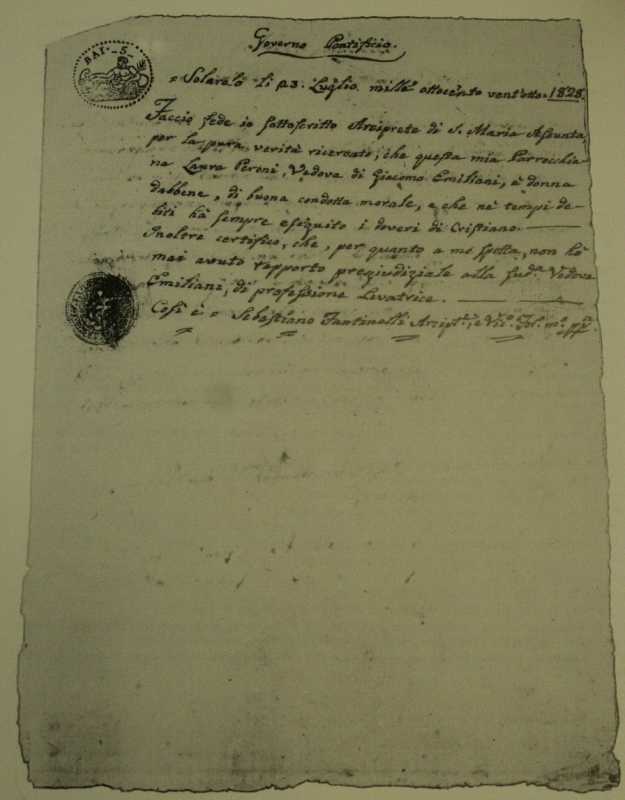 BAI. 5.
Governo Pontificio.
= Solarolo li 23. Luglio mille ottocento vent'otto. 1828.
Faccio fede io sottoscritto Arciprete di S. Maria Assunta,
per la pura verità ricercato, che questa mia Parrocchia-
na Laura Peroni, Vedova di Giacomo Emiliani, è donna
dabbene, di buona condotta morale, e che nè tempi de-
biti hà sempre eseguito i doveri di Cristiano.
Inoltre certifico, che, per quanto a me spetta, non hò
mai avuto rapporto pregiudiziale alla sud.a Vedova
Emiliani, di professione Levatrice.
Così è = Sebastiano Fantinelli Arcip.te, e Vic.o For. m.o pp.a